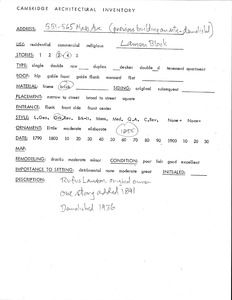 CAMBRIDGE ARCHITECTURAL INVENTORY
ADDRESS: 551-565 Mass Ave (previous building on site - demolished)
USE: residential commercial religious Lamson Block
STORIES: 1 2 3 4 5
TYPE: single double row duplex decker double d tenement apartment
ROOF: hip gable front gable flank mansard flat
MATERIAL: frame brick SIDING: original subsequent
PLACEMENT: narrow to street broad to street square
ENTRANCE: flank front side front center
STYLE: Grk, Ital, Mans, Med, Q.A., C.Rev, None
ORNAMENTS: little moderate elaborate
DATE: 1790 1800 10 20 30 40 50 60 70 80 90 1900 10 20 30
MAP:
REMODELING: drastic moderate minor CONDITION: poor fair good excellent
IMPORTANCE TO SETTING: detrimental none moderate great INITIALED:
DESCRIPTION: Rufus Lamson original owner
one story added 1891
Demolished 1936